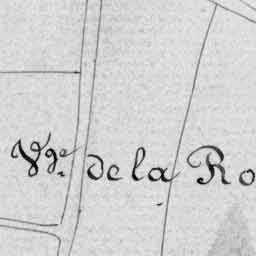 Vge. de la Ro